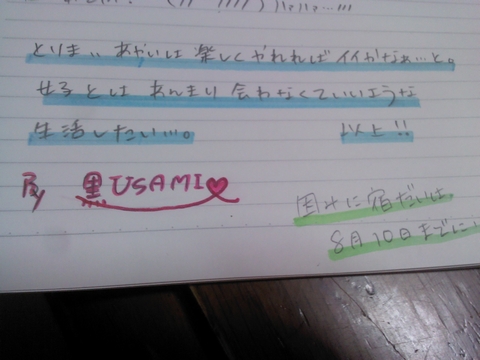 とりま、、あかいは楽しくやれればイイかなぁ…と。
女子とはあんまり会わなくていいような
生活したい…。 以上!!
By 黒USAMI♥
因みに宿だいは
8月10日までに